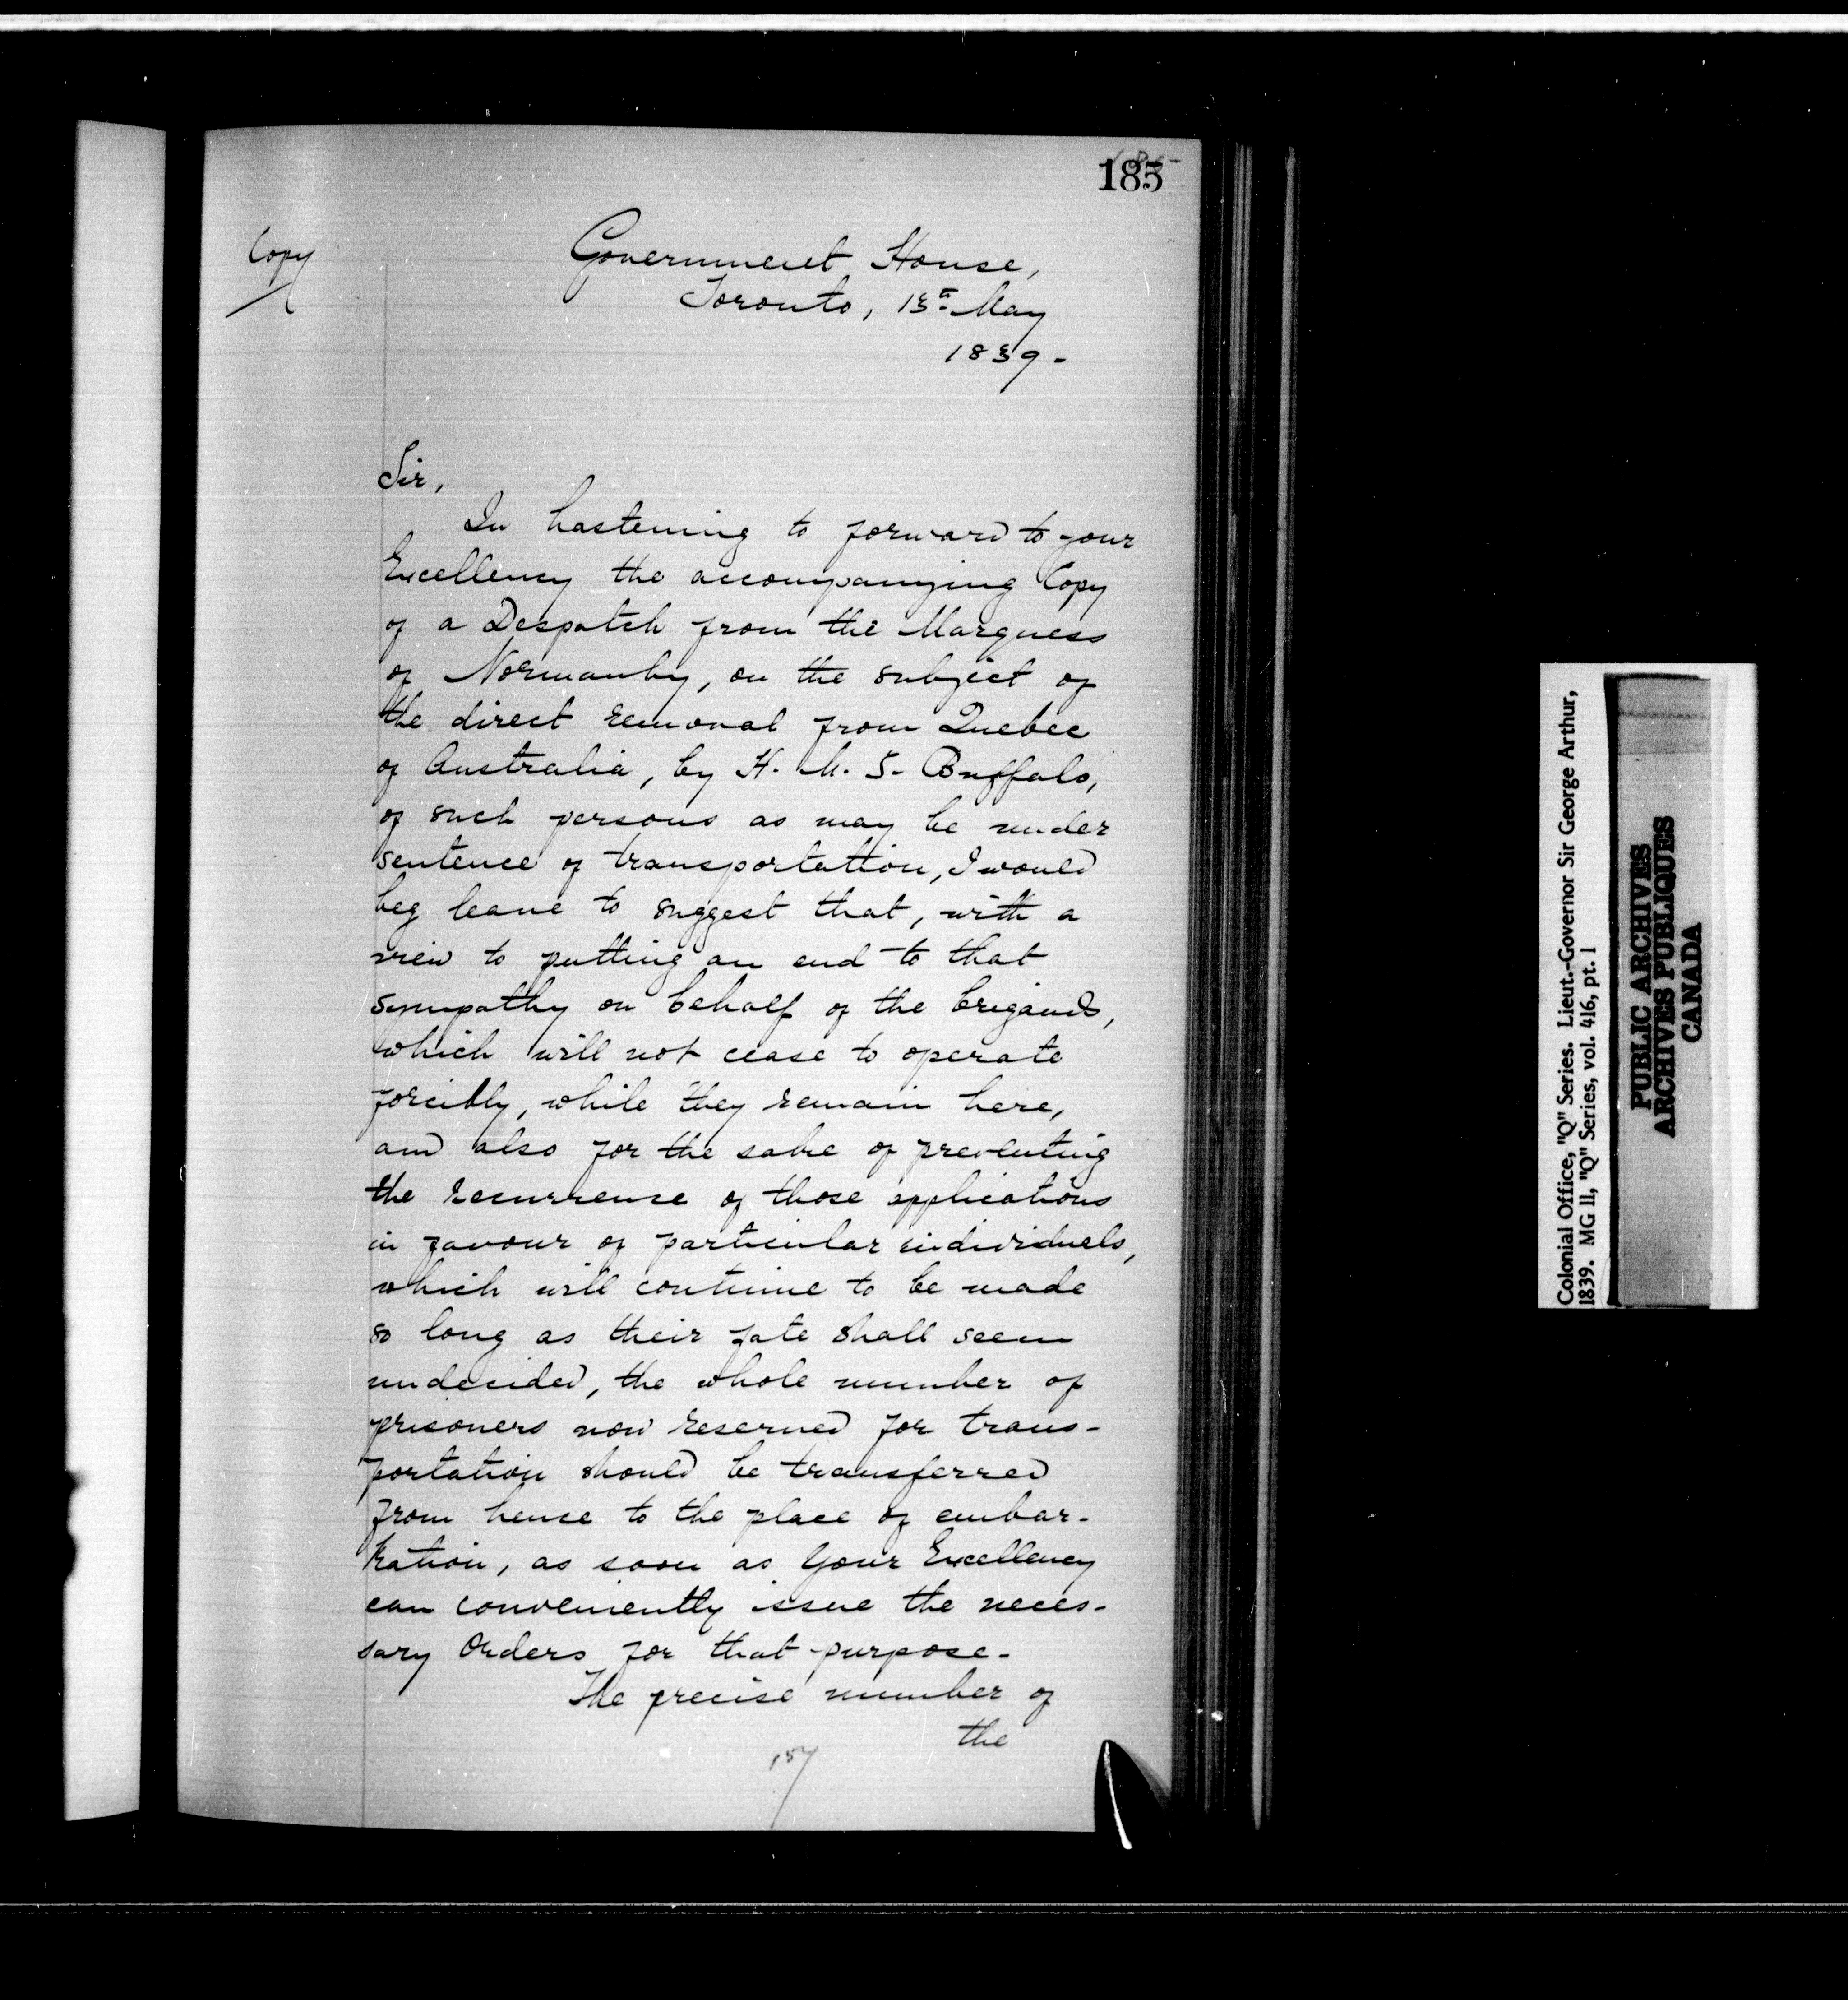 185
Copy
Government House,
Toronto, 13th May
1839-
Sir,
In hastening to forward to your
Excellency the accompanying Copy
of a Despatch from the Marquess
of Normanby, on the subject of
the direct removal from Quebec
of Australia, by H. M. S. Buffalo,
of such persons as may be under
sentence of transportation, I would
beg leave to suggest that, with a
view to putting an end to that
sympathy on behalf of the brigands,
which will not cease to operate
forcibly, while they remain here,
and also for the sake of preventing
the recurrence of those applications
in favour of particular individuals,
which will continue to be made
so long as their fate shall seem
undecided, the whole number of
prisoners now reserved for trans-
portation should be transferred
from hence to the place of embar-
kation, as soon as Your Excellency
can conveniently issue the neces-
sary Orders for that purpose-
The precise number of
the
157
Colonial Office, "Q" Series. Lieut.-Governor Sir George Arthur,
1839. MG 11, "Q" Series, vol. 416, pt. 1
PUBLIC ARCHIVES
ARCHIVES PUBLIQUES
CANADA